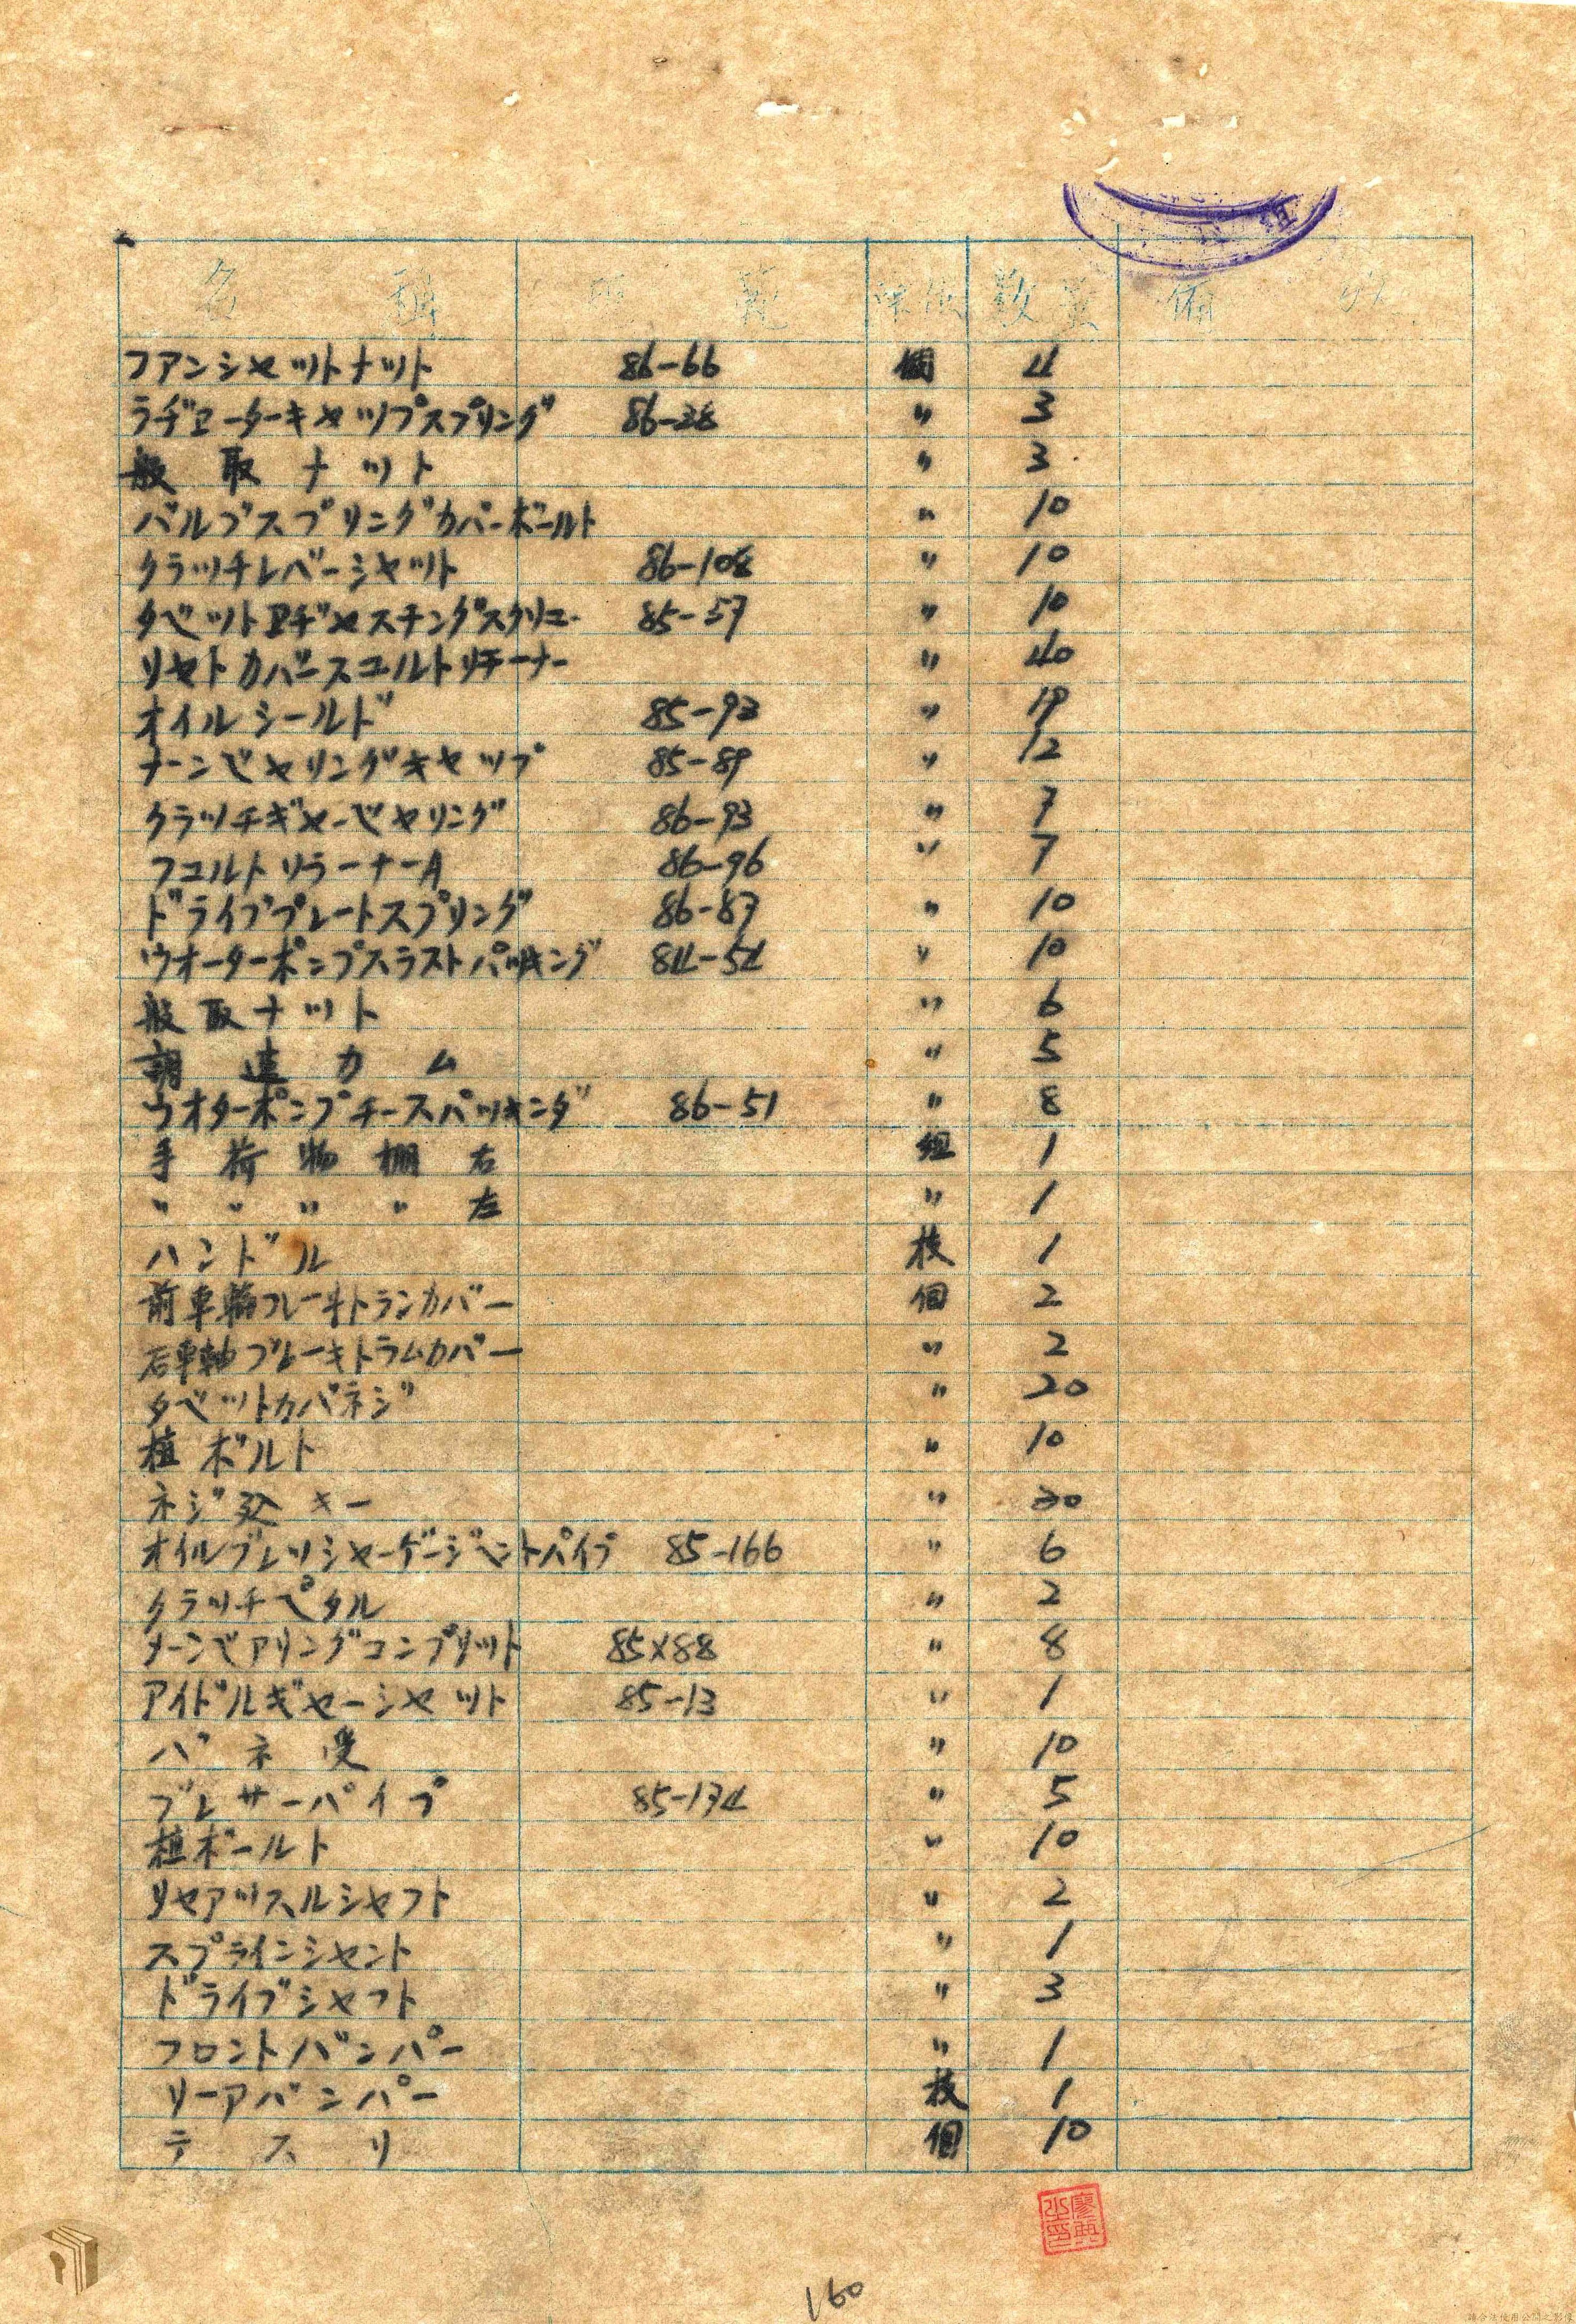 名 称 数量 備
フアンシヤツトナツト 86-66 個 4
ラヂエーターキヤツプスプリング 86-38 〃 3
取ナツト 〃 3
バルブスプリングカバーボールト 〃 10
クラツチレバーシヤツト 86-108 〃 10
タペツトアヂヤスチングスクリユー 85-57 〃 10
リヤトカバースエルトリテーナー 〃 40
オイルシールド 85-93 〃 19
ナーンベヤリングキヤツプ 85-89 〃 12
クラツチギヤーベヤリング 86-93 〃 7
フエルトリラーナーA 86-96 〃 7
ドライブプレートスプリング 86-87 〃 10
ウオーターポンプスラストパツキング 84-54 〃 10
取ナツト 〃 6
カム 〃 5
ウオターポンプチースパツキング 86-51 〃 8
手荷物棚右 組 1
〃 〃 〃 〃 左 〃 1
ハンドル 枝 1
前車輪フレーキトランカバー 個 2
右車軸ブレーキトラムカバー 〃 2
タペツトカバネジ 〃 20
植ボルト 〃 10
ネジ込キー 〃 20
オイルプレツシヤーゲージベントパイプ 85-166 〃 6
クラツチペタル 〃 2
メーンベアリングコンプリツト 85×88 〃 8
アイドルギヤーシヤツト 85-13 〃 1
バネ受 〃 10
ブレサーパイプ 85-174 〃 5
植ボールト 〃 10
リヤアツスルシヤフト 〃 2
スプラインシヤント 〃 1
ドライブシヤフト 〃 3
フロントバンパー 〃 1
リーアバンパー 枝 1
テスリ 個 10
160